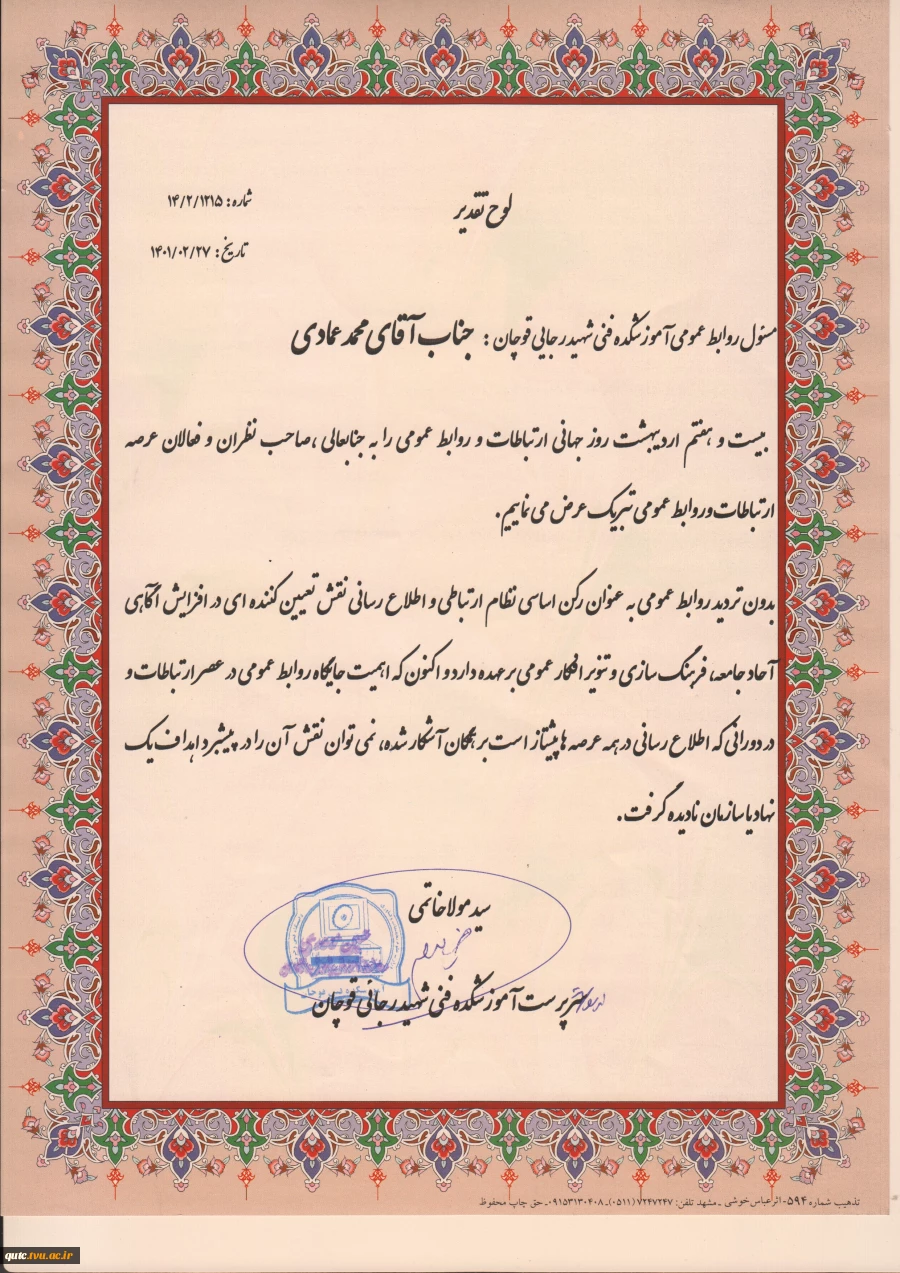 لوح تقدیر
شماره: ۱۴/۲/۱۲۱۵
تاریخ: ۱۴۰۱/۰۲/۲۷
مسئول روابط عمومی آموزشکده فنی شهید رجایی قوچان : جناب آقای محمد عمادی
بیست و هفتم اردیبهشت روز جهانی ارتباطات و روابط عمومی را به جنابعالی ،صاحب نظران و فعالان عرصه
ارتباطات و روابط عمومی تبریک عرض می نماییم.
بدون تردید روابط عمومی به عنوان رکن اساسی نظام ارتباطی و اطلاع رسانی نقش تعیین کننده ای در افزایش آگاهی
آحاد جامعه، فرهنگ سازی و تنویر افکار عمومی بر عهده دارد و اکنون که اهمیت جایگاه روابط عمومی در عصر ارتباطات و
در دورانی که اطلاع رسانی در همه عرصه ها پیشتاز است بر همگان آشکار شده، نمی توان نقش آن را در پیشبرد اهداف یک
نهاد یا سازمان نادیده گرفت.
سید مولا خاتمی
سرپرست آموزشکده فنی شهید رجائی قوچان
تذهیب شماره ۵۹۴- اثر عباس خوشی - مشهد تلفن: ۷۲۴۷۲۴۷ (۰۵۱۱)-۰۹۱۵۳۱۳۰۴۰۸- حق چاپ محفوظ
qutc.tvu.ac.ir